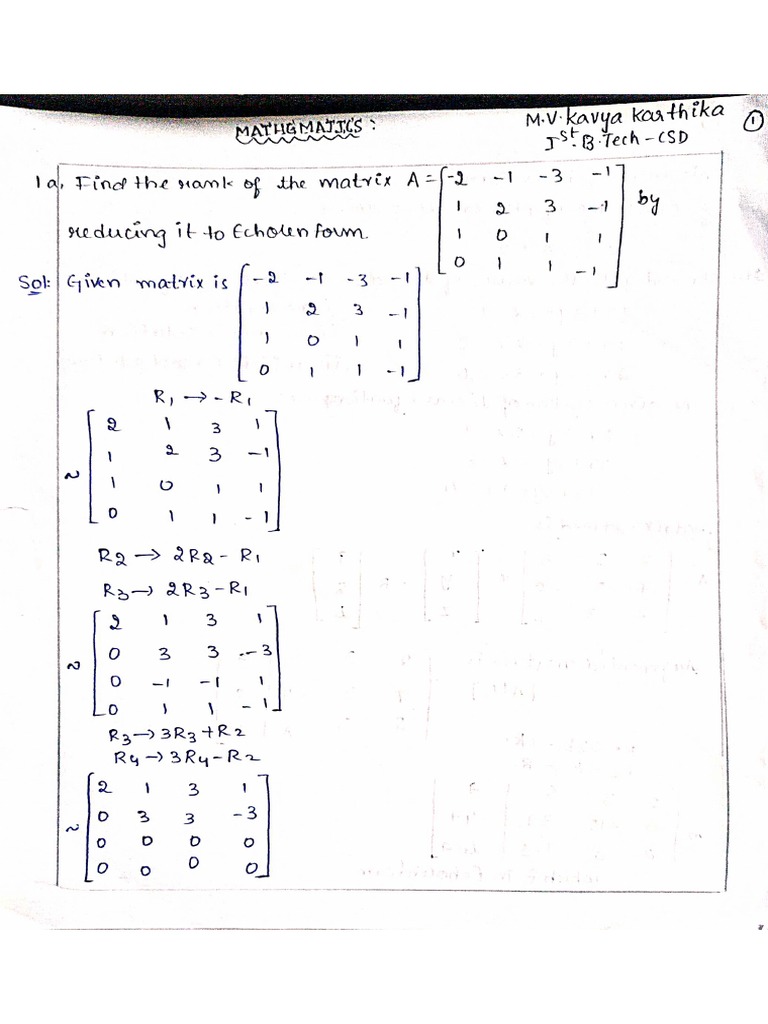 MATHEMATICS:
M.V. Kavya Karthika
Ist B.Tech - CSD
1
1a, Find the rank of the matrix A = [-2 -1 -3 -1
1 2 3 -1
1 0 1 1
0 1 1 -1] by
reducing it to Echolen form.
Sol: Given matrix is [-2 -1 -3 -1
1 2 3 -1
1 0 1 1
0 1 1 -1]
R1 → -R1
~ [2 1 3 1
1 2 3 -1
1 0 1 1
0 1 1 -1]
R2 → 2R2 - R1
R3 → 2R3 - R1
~ [2 1 3 1
0 3 3 -3
0 -1 -1 1
0 1 1 -1]
R3 → 3R3 + R2
R4 → 3R4 - R2
~ [2 1 3 1
0 3 3 -3
0 0 0 0
0 0 0 0]